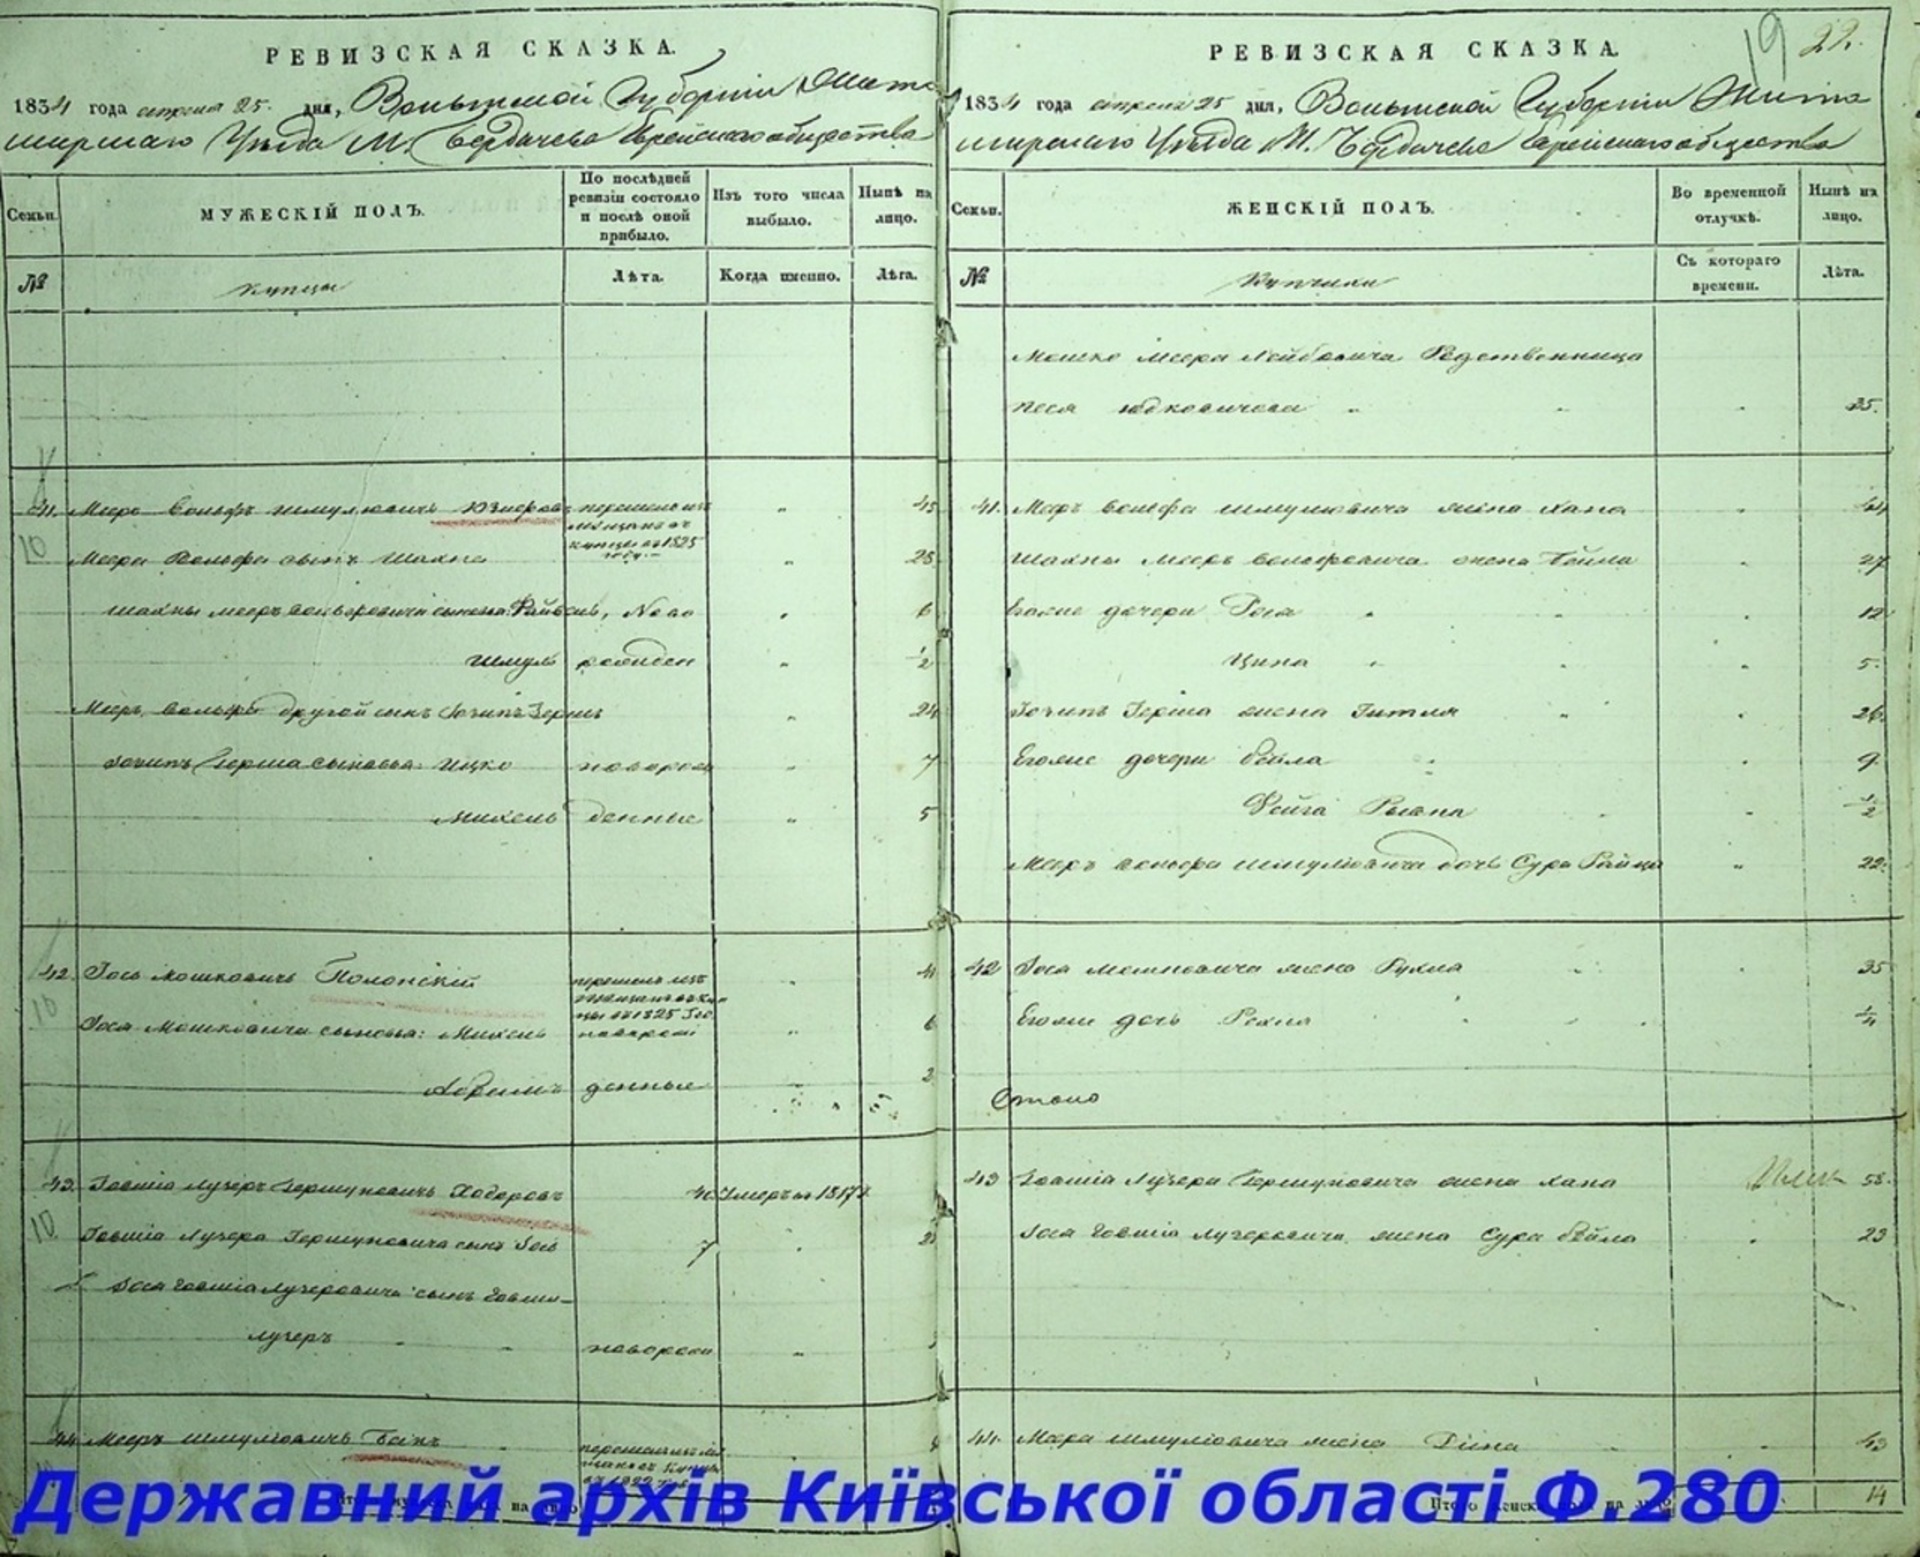 РЕВИЗСКАЯ СКАЗКА.
1834 года апреля 25. дня, Волынской Губернии Жито
мирскаго Уезда М. Бердичева Еврейскаго общества
Семьи.
МУЖЕСКІЙ ПОЛЪ.
По послѣдней ревизіи состояло и послѣ оной прибыло.
Изъ того числа выбыло.
Нынѣ на лицо.
№
Купцы
Лѣта.
Когда именно.
Лѣта.
41. Меер Вольфъ Шмулювичъ перешелъ изъ мещанъ въ купцы въ 1825 году 45
Меера Вольфа сынъ Шахна 28
Шахны Мееръ Вольфовича сыновья: Файвель, Ново 6
Шмуль рожден 1/2
Мееръ Вольфа другой сынъ Іочипъ Герш 24
Іочипъ Герша сыновья: Ицко новорож 7
Михель денные 5
42. Іось Мошковичъ Полонскій перешелъ изъ мещанъ въ 1825
Іося Мошковича сыновья: Михель новорож 6
Абрамъ денные 2
43. Іовшіа Лузеръ Гершуновичъ Ходоровъ 40 Умеръ въ 1817
Іовшіа Лузера Гершуновича сынъ Іось 7
Іося Іовшіа Лузеровича сынъ Іовши
Лузеръ новорож
44. Мееръ Шмулювичъ
РЕВИЗСКАЯ СКАЗКА.
19 22.
1834 года апреля 25 дня, Волынской Губернии Жито
мирскаго Уезда М. Бердичева Еврейскаго общества
Семьи.
ЖЕНСКІЙ ПОЛЪ.
Во временной отлучкѣ.
Нынѣ на лицо.
№
Купчихи
Съ котораго времени.
Лѣта.
Мошко Меера Лейбовича Родственница
Песя Юдковичева 35.
41. Меръ Вольфа Шмулювича жена Хана 44
Шахны Мееръ Вольфовича жена Бейла 27
Еголие дочери Рося 12
Ципа 5.
Іочипъ Герша жена Гитля 26.
Еголие дочери Бейла 9.
Фейга Рыхля 1/2
Мееръ Вольфа Шмулювича дочь Сура Райца 22.
42 Іося Мошковича жена Рухля 35
Еголие дочь Рехля 1/4
43 Іовшіа Лузера Гершуновича жена Хана 58.
Іося Іовшіа Лузеровича жена Сура Бейла 23
44. Меера Шмулювича жена Дина 43
Итого женска пола на лицо 14
Державний архів Київської області Ф.280